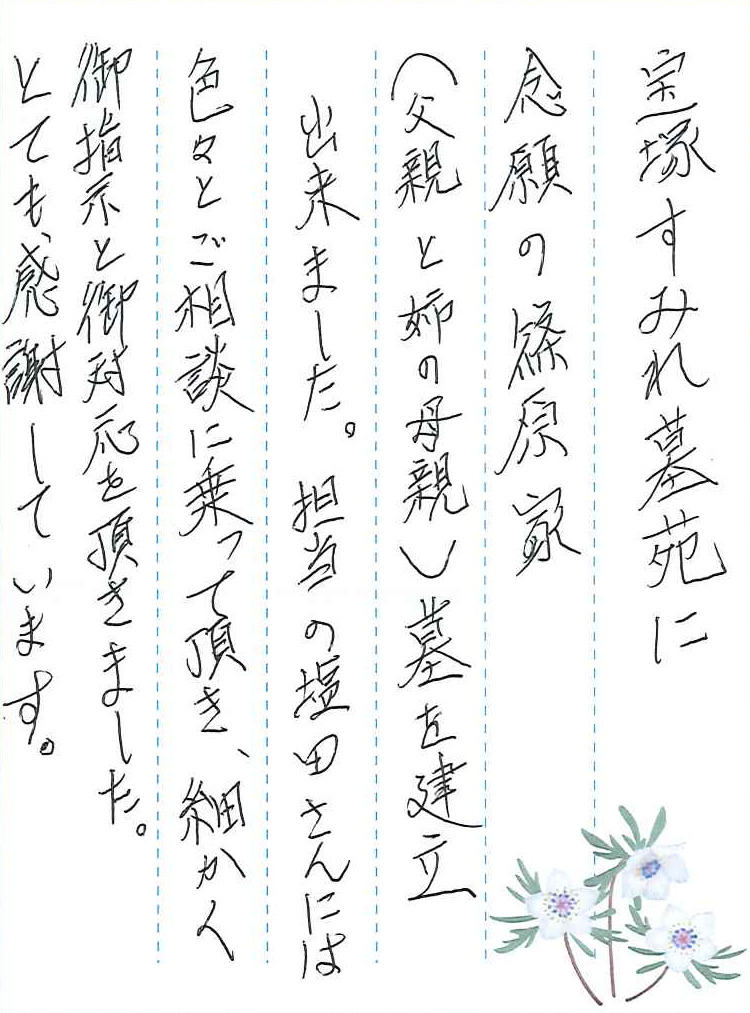 宝塚すみれ墓苑に
念願の篠原家
(父親と姉の母親)墓を建立
出来ました。担当の塩田さんには
色々とご相談に乗って頂き、細かく
御指示と御対応を頂きました。
とても、感謝しています。